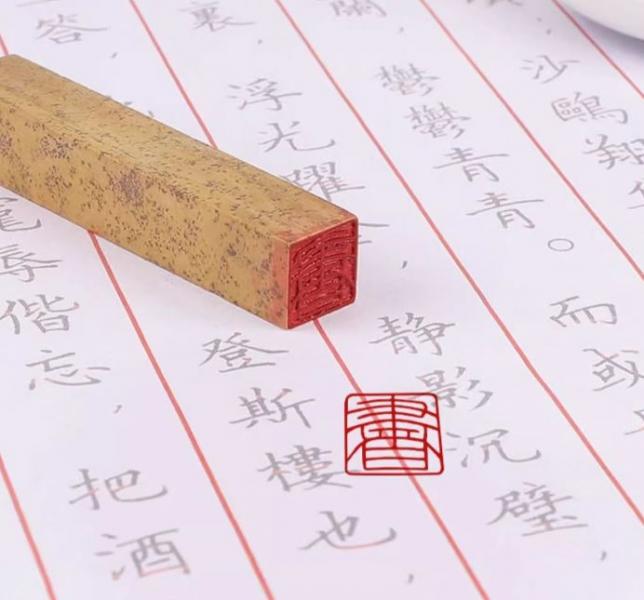 沙鷗翔
鬱鬱青青。而或
裏浮光躍,静影沉璧,
答登斯樓也,
辱偕忘,把酒